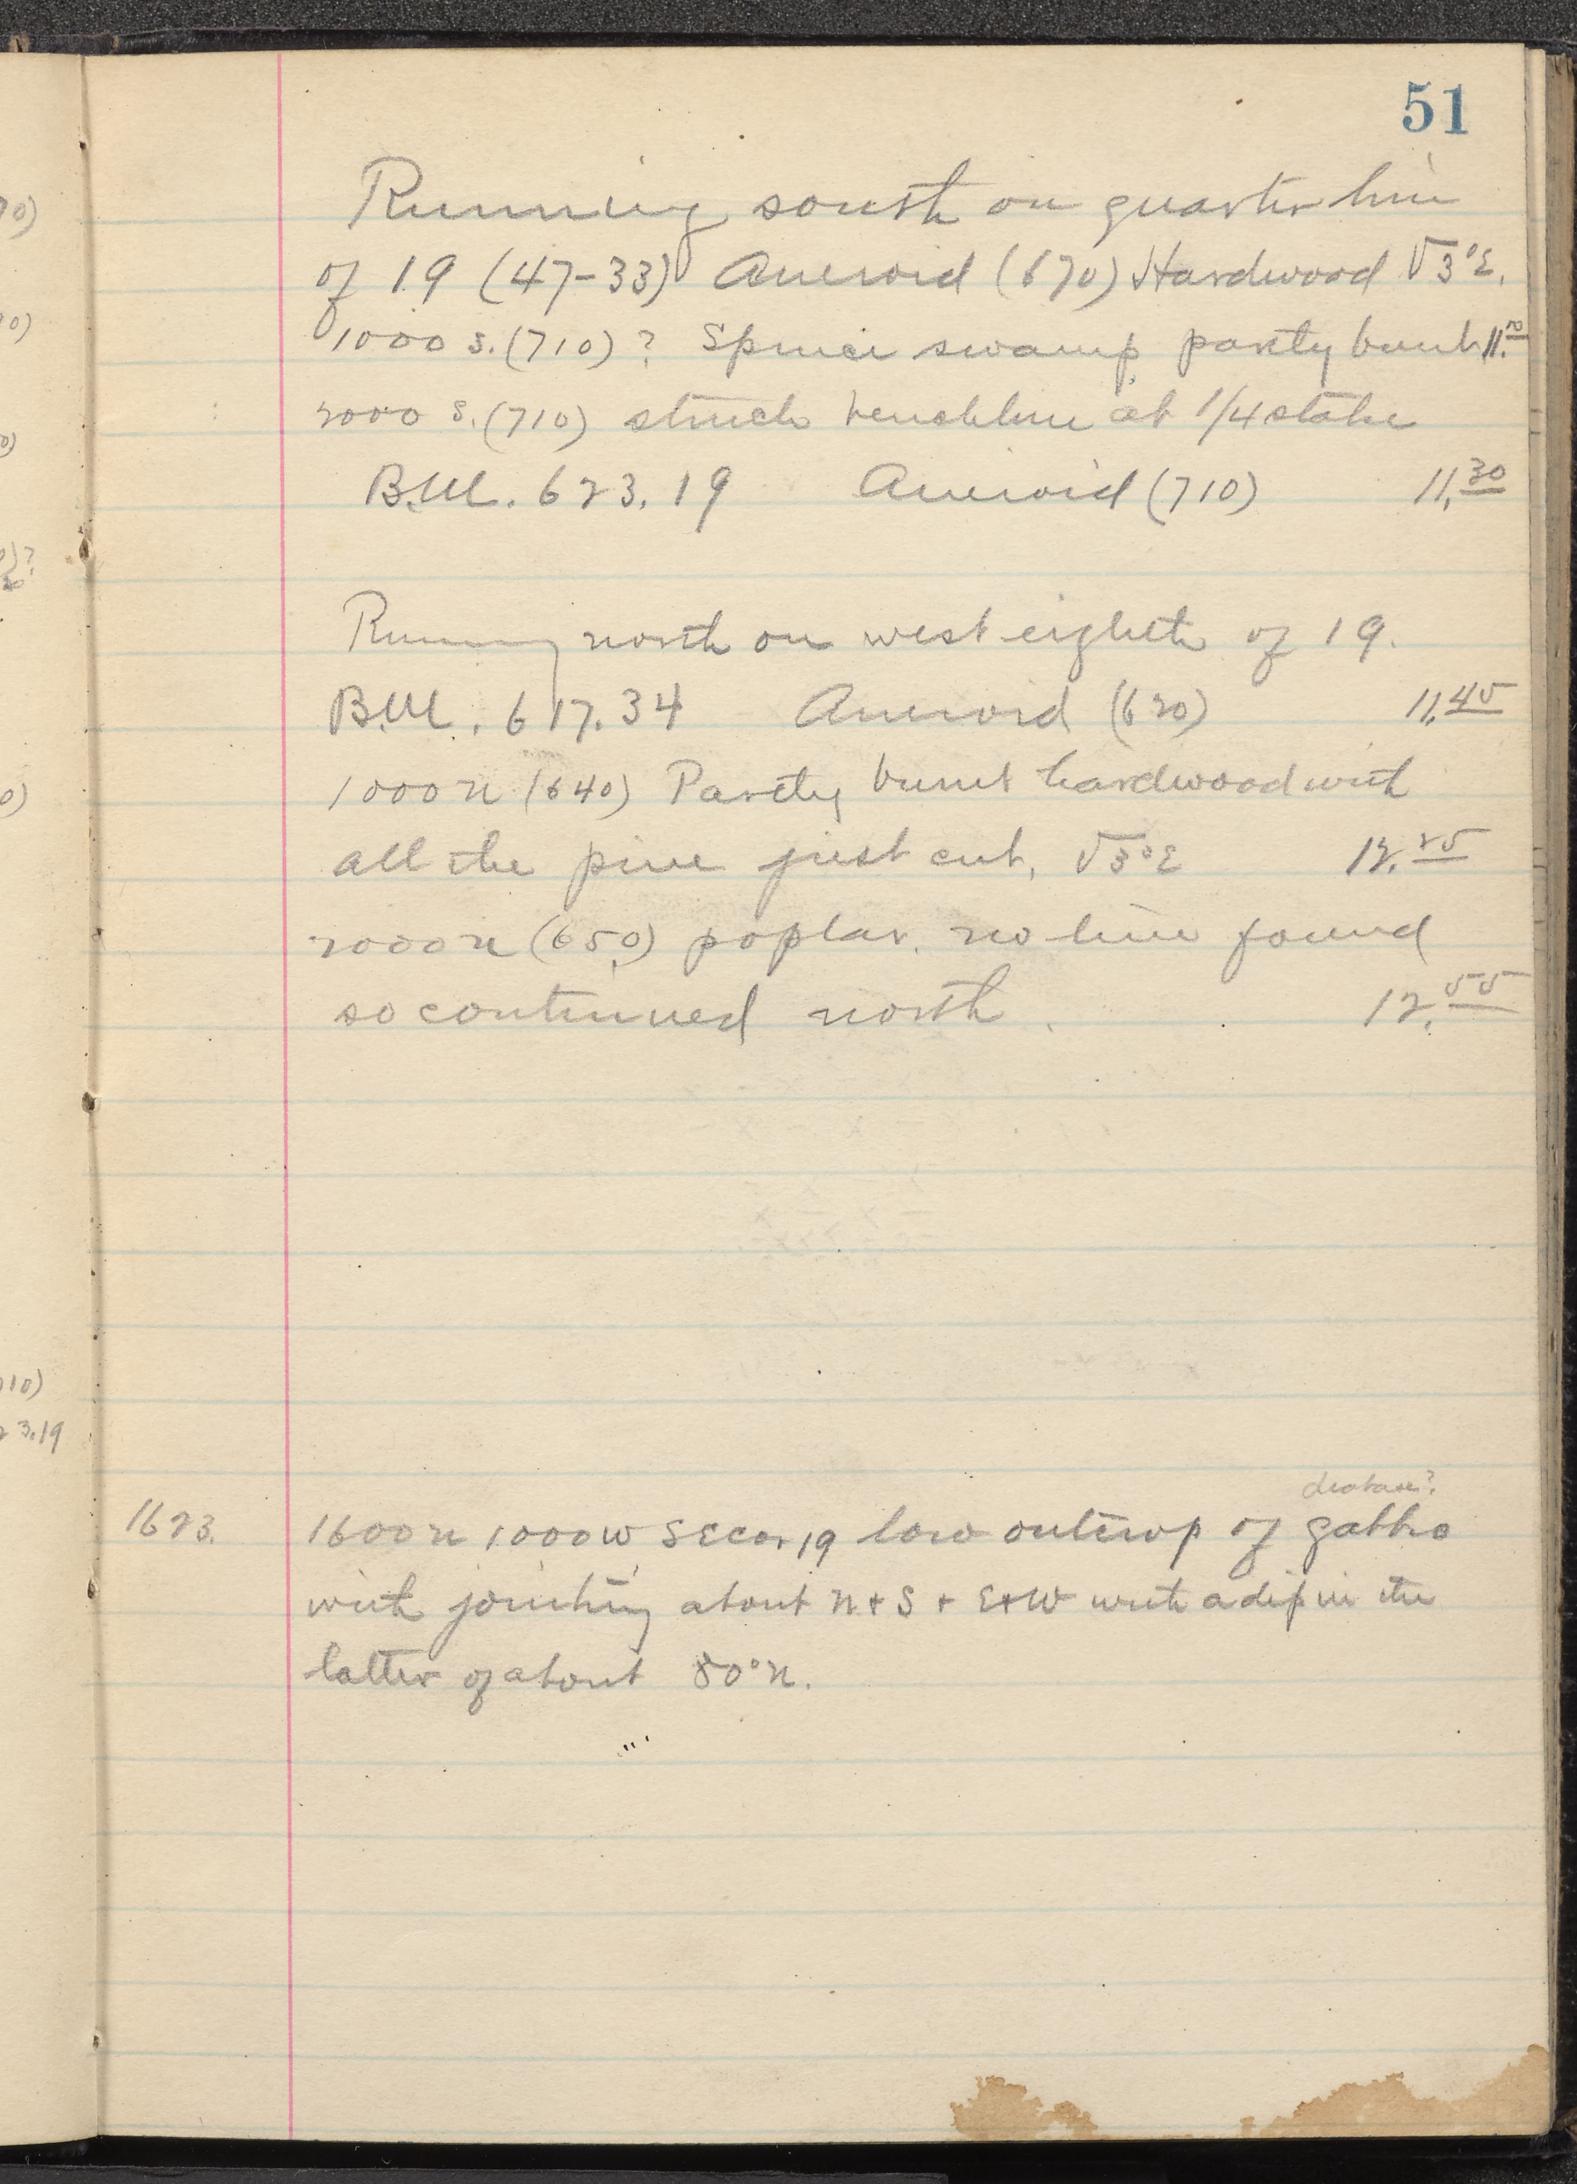 51
Running south on quarter line
of 19 (47-33) Aneroid (670) Hardwood V3°E.
1000 S. (710) ? Spruce swamp partly burnt 11.20
2000 S. (710) struck benchline at 1/4 stake
B.M. 623.19 Aneroid (710) 11.30
Running north on west eighth of 19.
B.M. 617.34 Aneroid (620) 11.45
1000 N (640) Partly burnt hardwood with
all the pine just cut, V3°E 12.25
2000 N (650) poplar. no line found
so continued north. 12.55
diabase?
1623. 1600 N 1000 W SE cor 19 low outcrop of gabbro
with jointing about N + S + E + W with a dip in the
latter of about 80° N.
10)
23.19